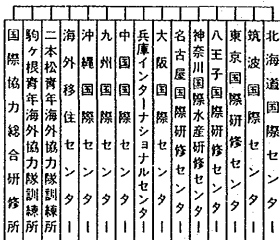 北海道国際センター
筑波国際センター
東京国際研修センター
八王子国際研修センター
神奈川国際水産研修センター
名古屋国際研修センター
大阪国際センター
兵庫インターナショナルセンター
中国国際センター
九州国際センター
沖縄国際センター
海外移住センター
二本松青年海外協力隊訓練所
駒ヶ根青年海外協力隊訓練所
国際協力総合研修所